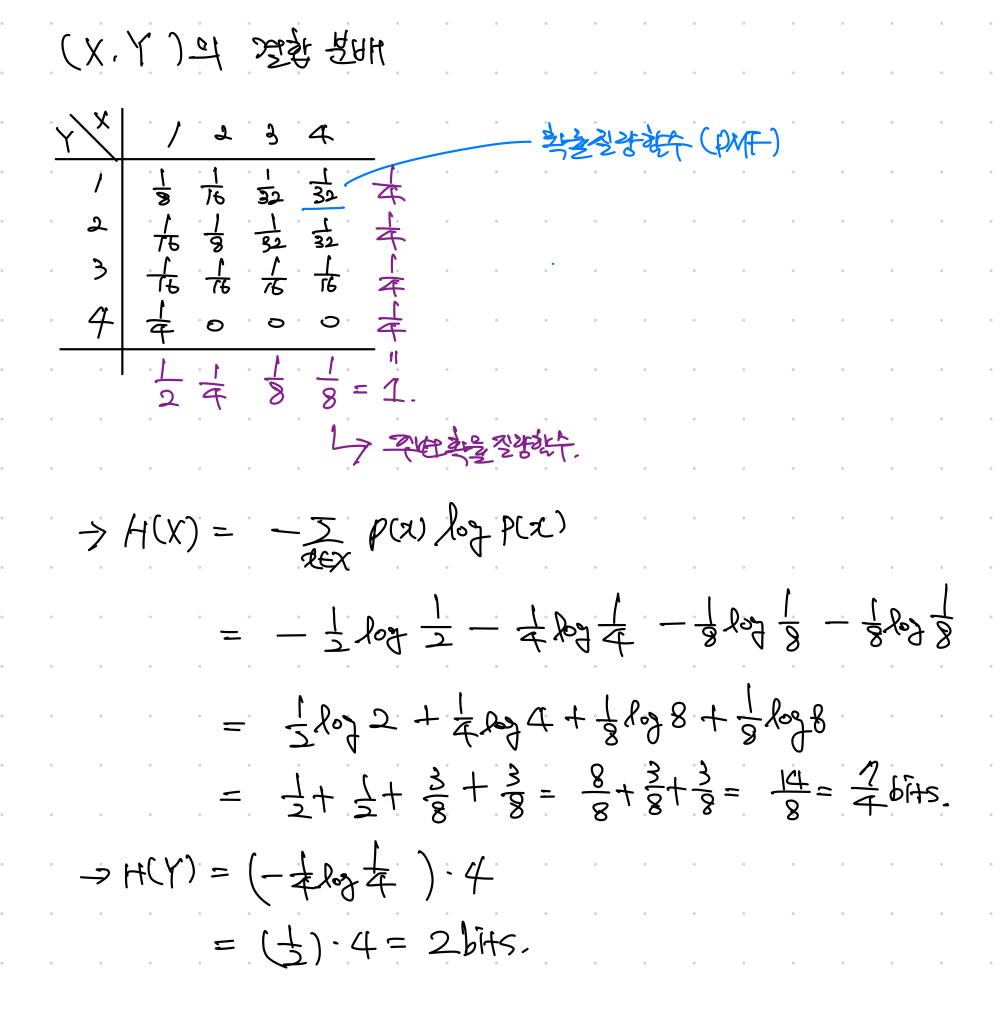 (X, Y)의 결합 분배
Y X 1 2 3 4 확률질량함수 (PMF)
1 1/8 1/16 1/32 1/32 1/4
2 1/16 1/8 1/32 1/32 1/4
3 1/16 1/16 1/16 1/16 1/4
4 1/4 0 0 0 1/4
1/2 1/4 1/8 1/8 = 1.
↳ 주변확률질량함수.
→ H(X) = -∑x∈X p(x) log p(x)
= - 1/2 log 1/2 - 1/4 log 1/4 - 1/8 log 1/8 - 1/8 log 1/8
= 1/2 log 2 + 1/4 log 4 + 1/8 log 8 + 1/8 log 8
= 1/2 + 1/2 + 3/8 + 3/8 = 8/8 + 3/8 + 3/8 = 14/8 = 7/4 bits.
→ H(Y) = (-1/4 log 1/4) · 4
= (1/2) · 4 = 2 bits.